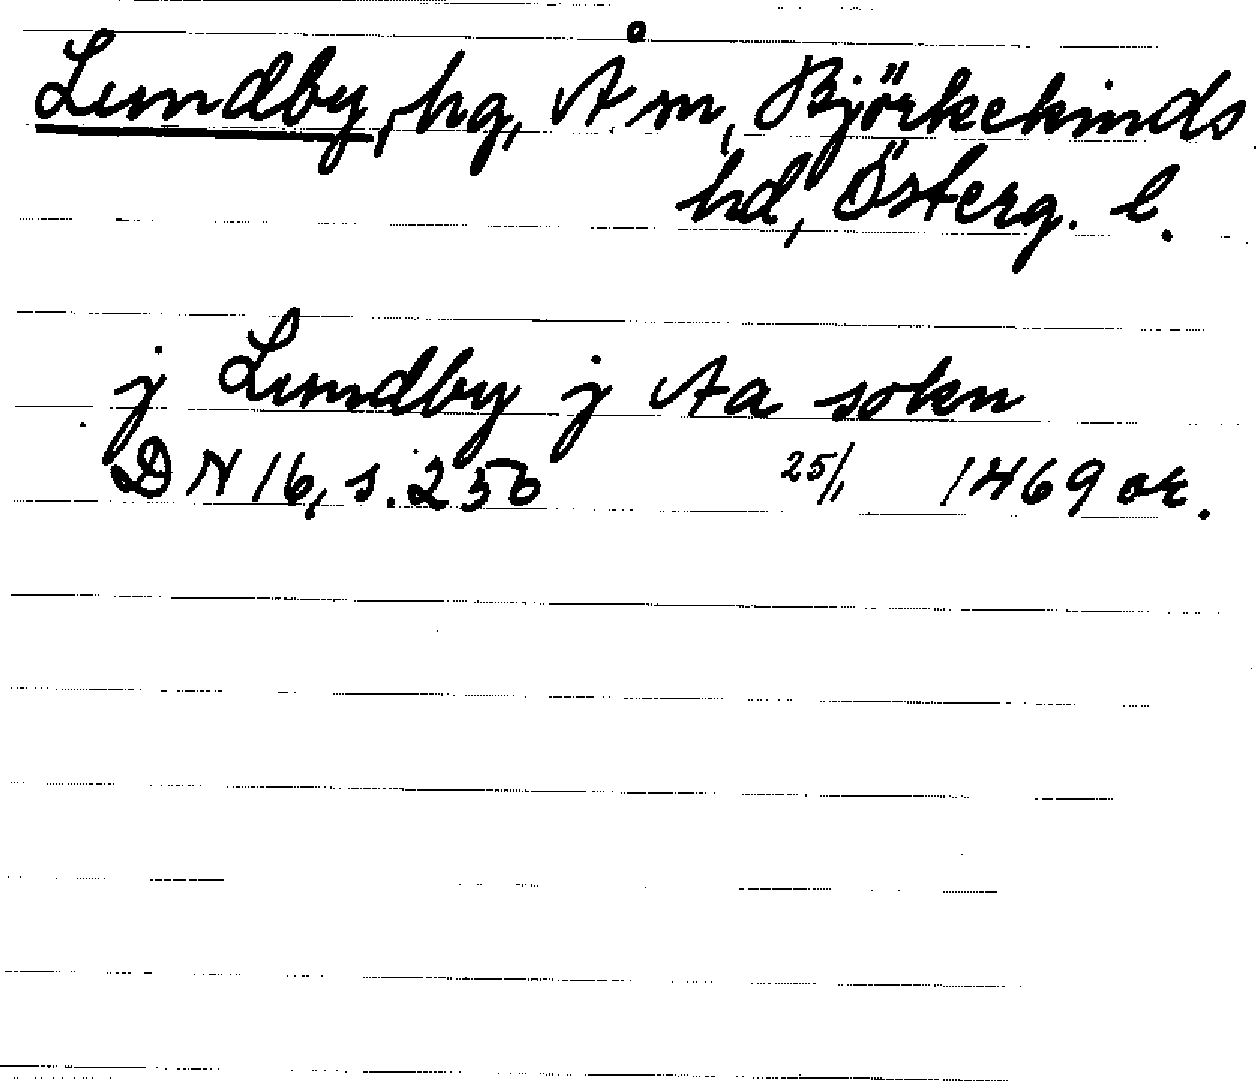 Lundby, hg, Å sn, Björkekinds
hd, Österg. l.
j Lundby j Aa sokn
DN 16, s. 250 25/1 1469 or.